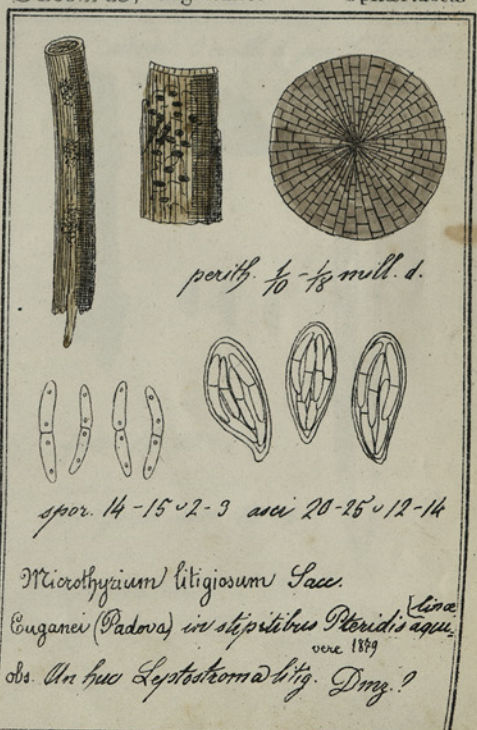 perith. 1/10 - 1/18 mill. d.
spor. 14-15 ᴗ 2-3 asci 20-25 ᴗ 12-14
Microthyrium litigiosum Sacc.
Euganei (Padova) in stipitibus Pteridis aqui=
[linæ
vere 1879
obs. An huc Leptostroma litig. Dmz.?